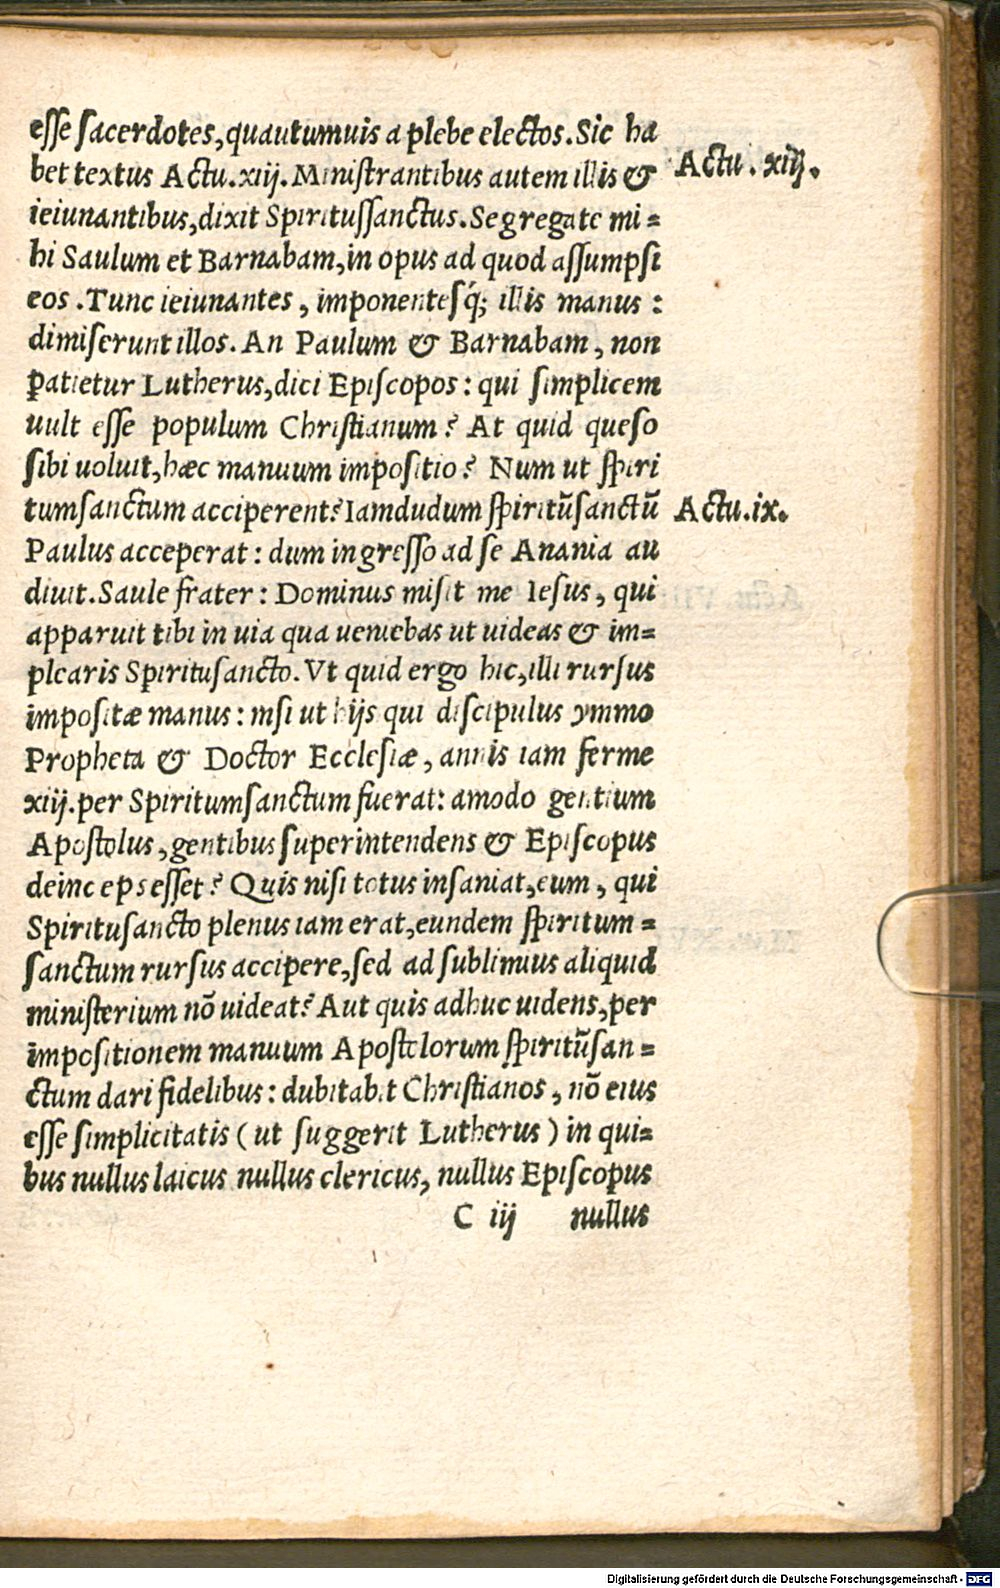 esse sacerdotes, quautumuis a plebe electos. Sic ha
bet textus Actu. xiij. Ministrantibus autem illis &
ieiunantibus, dixit Spiritussanctus. Segregate mi=
hi Saulum et Barnabam, in opus ad quod assumpsi
eos. Tunc ieiunantes, imponentesq́; illis manus:
dimiserunt illos. An Paulum & Barnabam, non
patietur Lutherus, dici Episcopos: qui simplicem
uult esse populum Christianum? At quid queso
sibi uoluit, hæc manuum impositio? Num ut spiri
tumsanctum acciperent? Iamdudum spiritũsanctũ
Paulus acceperat: dum ingresso ad se Anania au
diuit. Saule frater: Dominus misit me Iesus, qui
apparuit tibi in uia qua ueniebas ut uideas & im=
plearis Spiritusancto. Vt quid ergo hic, illi rursus
impositæ manus: nisi ut hijs qui discipulus ymmo
Propheta & Doctor Ecclesiæ, annis iam ferme
xiij. per Spiritumsanctum fuerat: amodo gentium
Apostolus, gentibus superintendens & Episcopus
deinceps esset? Quis nisi totus insaniat, eum, qui
Spiritusancto plenus iam erat, eundem spiritum=
sanctum rursus accipere, sed ad sublimius aliquid
ministerium nõ uideat? Aut quis adhuc uidens, per
impositionem manuum Apostolorum spiritũsan=
ctum dari fidelibus: dubitabit Christianos, nõ eius
esse simplicitatis (ut suggerit Lutherus) in qui=
bus nullus laicus nullus clericus, nullus Episcopus
C iij nullus
Actu. xiij.
Actu. ix.
Digitalisierung gefördert durch die Deutsche Forschungsgemeinschaft - DFG